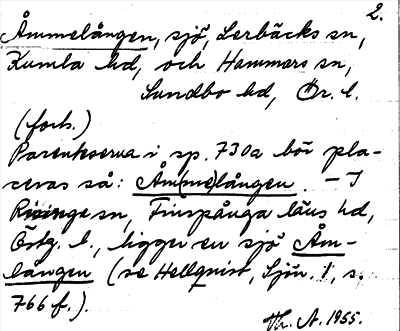 2.
Åmmelången, sjö, Lerbäcks sn,
Kumla hd, och Hammars sn,
Sundbo hd, Ör. l.
(forts.)
Parenteserna i sp. 730a bör pla-
ceras så: Åm(me)lången. – I
Risinge sn, Finspånga läns hd,
Östg. l., ligger en sjö Åm-
lången (se Hellquist, Sjön. 1, s.
766 f.).
Th. A. 1955.